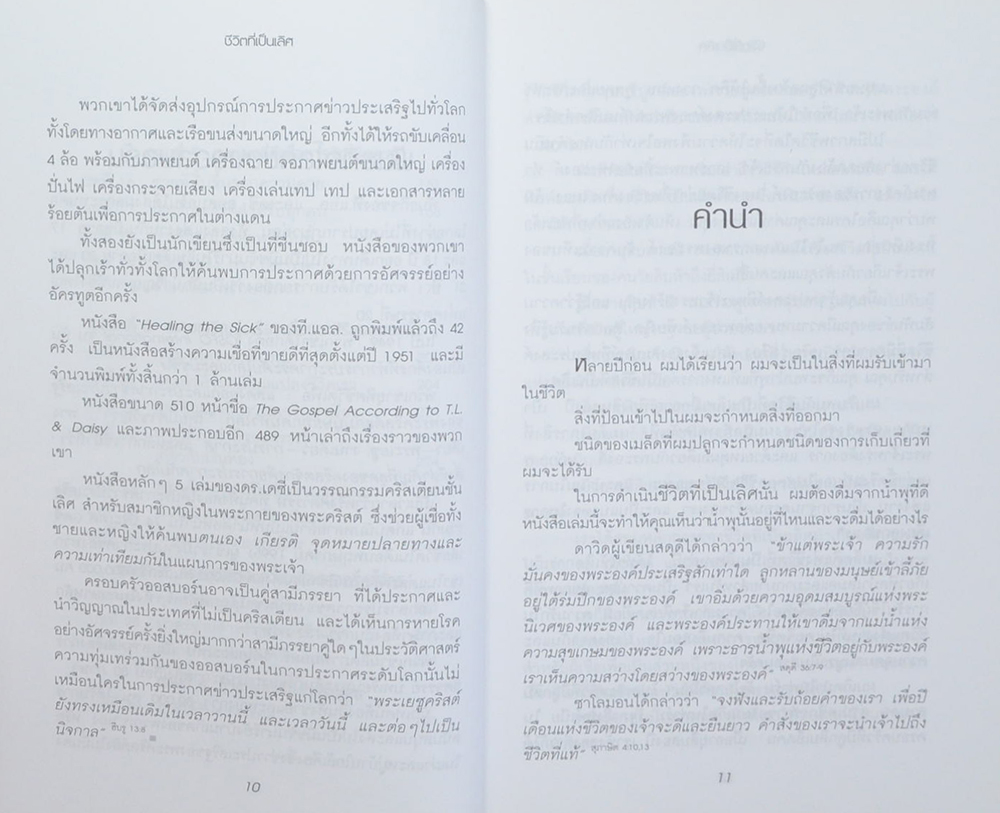 ชีวิตที่เป็นเลิศ
พวกเขาได้จัดส่งอุปกรณ์การประกาศข่าวประเสริฐไปทั่วโลก
ทั้งโดยทางอากาศและเรือขนส่งขนาดใหญ่ อีกทั้งได้ให้รถขับเคลื่อน
4 ล้อ พร้อมกับภาพยนต์ เครื่องฉาย จอภาพยนต์ขนาดใหญ่ เครื่อง
ปั่นไฟ เครื่องกระจายเสียง เครื่องเล่นเทป เทป และเอกสารหลาย
ร้อยตันเพื่อการประกาศในต่างแดน
ทั้งสองยังเป็นนักเขียนซึ่งเป็นที่ชื่นชอบ หนังสือของพวกเขา
ได้ปลุกเร้าทั่วทั้งโลกให้ค้นพบการประกาศด้วยการอัศจรรย์อย่าง
อัครทูตอีกครั้ง
หนังสือ "Healing the Sick" ของที.แอล. ถูกพิมพ์แล้วถึง 42
ครั้ง เป็นหนังสือสร้างความเชื่อที่ขายดีที่สุดตั้งแต่ปี 1951 และมี
จำนวนพิมพ์ทั้งสิ้นกว่า 1 ล้านเล่ม
หนังสือขนาด 510 หน้าชื่อ The Gospel According to T.L.
& Daisy และภาพประกอบอีก 489 หน้าเล่าถึงเรื่องราวของพวก
เขา
หนังสือหลักๆ 5 เล่มของดร.เดซี่เป็นวรรณกรรมคริสเตียนชั้น
เลิศ สำหรับสมาชิกหญิงในพระกายของพระคริสต์ ซึ่งช่วยผู้เชื่อทั้ง
ชายและหญิงให้ค้นพบตนเอง เกียรติ จุดหมายปลายทางและ
ความเท่าเทียมกันในแผนการของพระเจ้า
ครอบครัวออสบอร์นอาจเป็นคู่สามีภรรยา ที่ได้ประกาศและ
นำวิญญาณในประเทศที่ไม่เป็นคริสเตียน และได้เห็นการหายโรค
อย่างอัศจรรย์ครั้งยิ่งใหญ่มากกว่าสามีภรรยาคู่ใดๆในประวัติศาสตร์
ความทุ่มเทร่วมกันของออสบอร์นในการประกาศระดับโลกนั้นไม่
เหมือนใครในการประกาศข่าวประเสริฐแก่โลกว่า "พระเยซูคริสต์
ยังทรงเหมือนเดิมในเวลาวานนี้ และเวลาวันนี้ และต่อๆไปเป็น
นิจกาล" ฮีบรู 13:8
10
คำนำ
หลายปีก่อน ผมได้เรียนว่า ผมจะเป็นในสิ่งที่ผมรับเข้ามา
ในชีวิต
สิ่งที่ป้อนเข้าไปในผมจะกำหนดสิ่งที่ออกมา
ชนิดของเมล็ดที่ผมปลูกจะกำหนดชนิดของการเก็บเกี่ยวที่
ผมจะได้รับ
ในการดำเนินชีวิตที่เป็นเลิศนั้น ผมต้องดื่มจากน้ำพุที่ดี
หนังสือเล่มนี้จะทำให้คุณเห็นว่าน้ำพุนั้นอยู่ที่ไหนและจะดื่มได้อย่างไร
ดาวิดผู้เขียนสดุดีได้กล่าวว่า "ข้าแต่พระเจ้า ความรัก
มั่นคงของพระองค์ประเสริฐสักเท่าใด ลูกหลานของมนุษย์เข้าลี้ภัย
อยู่ใต้ร่มปีกของพระองค์ เขาอิ่มด้วยความอุดมสมบูรณ์แห่งพระ
นิเวศของพระองค์ และพระองค์ประทานให้เขาดื่มจากแม่น้ำแห่ง
ความสุขเกษมของพระองค์ เพราะธารน้ำพุแห่งชีวิตอยู่กับพระองค์
เราเห็นความสว่างโดยสว่างของพระองค์" สดุดี 36:7-9
ซาโลมอนได้กล่าวว่า "จงฟังและรับถ้อยคำของเรา เพื่อปี
เดือนแห่งชีวิตของเจ้าจะดีและยืนยาว คำสั่งของเราจะนำเจ้าไปถึง
ชีวิตที่แท้" สุภาษิต 4:10,13
11